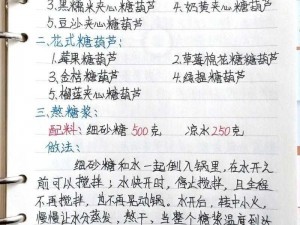 3.黑糯米夹心糖葫芦 4.奶黄夹心糖葫芦
5.豆沙夹心糖葫芦
二.花式糖葫芦
1.莓果糖葫芦 2.草莓棉花糖糖葫芦
3.金桔糖葫芦 4.绿提糖葫芦
5.榴莲夹心糖葫芦
三.熬糖浆:
配料:细砂糖500克 凉水250克
做法:
细砂糖和水一起倒入锅里,在水开之
前可以搅拌;水快开时,停止搅拌,且全程
不再搅拌,且不再晃动锅.水开后,转中小火,
慢慢让水分蒸发,熬干,当整个糖浆温度到达